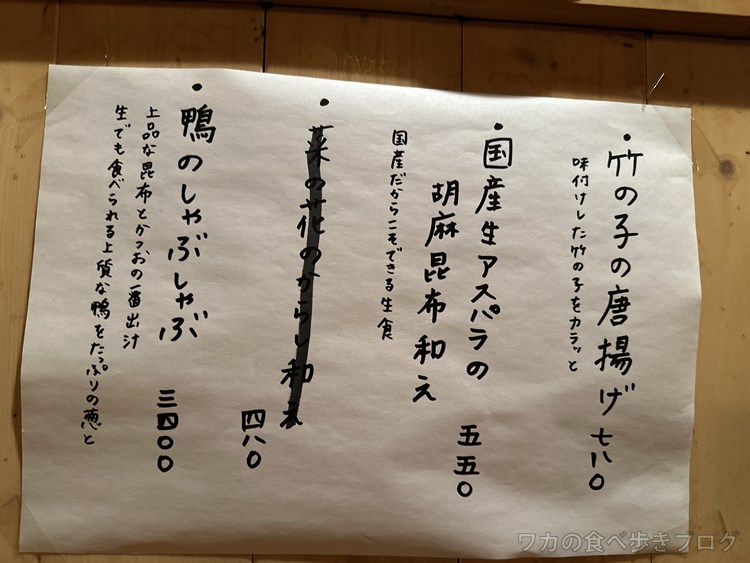 ・竹の子の唐揚げ 七八〇
味付けした竹の子をカラッと
・国産生アスパラの
胡麻昆布和え 五五〇
国産だからこそできる生食
・菜の花のからし和え
四八〇
・鴨のしゃぶしゃぶ
三四〇〇
上品な昆布とかつおの一番出汁
生でも食べられる上質な鴨をたっぷりの葱と
ワカの食べ歩きブログ